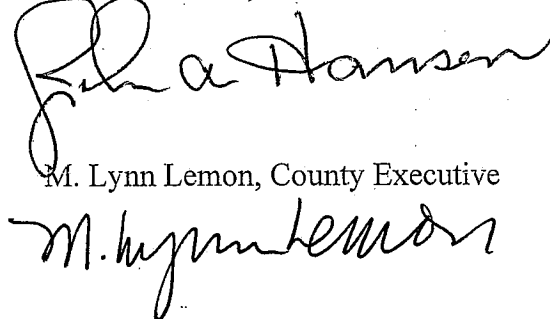 John A Hansen
M. Lynn Lemon, County Executive
M. Lynn Lemon